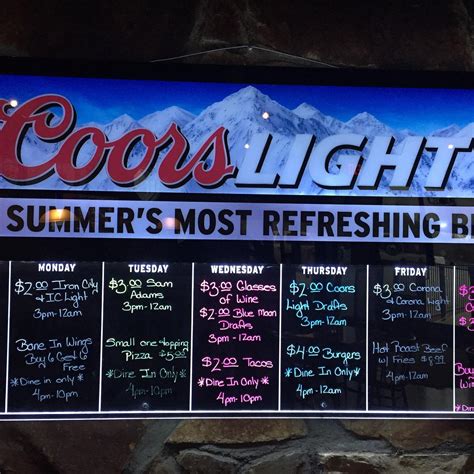 Coors LIGHT
SUMMER'S MOST REFRESHING
MONDAY
$2.00 Iron City
& IC Light
3pm-12am
Bone In Wings
Buy 6 Get 6
Free
*Dine in only*
4pm-10pm
TUESDAY
$3.00 Sam
Adams
3pm-12am
Small one topping
Pizza $5.00
*Dine In Only*
4pm-10pm
WEDNESDAY
$3.00 Glasses
of Wine
$2.00 Blue Moon
Drafts
3pm-12am
$2.00 Tacos
*Dine In Only*
4pm-10pm
THURSDAY
$2.00 Coors
Light Drafts
3pm-12am
$4.00 Burgers
*Dine In Only*
4pm-10pm
FRIDAY
$3.00 Corona
& Corona Light
3pm-12am
Hot Roast Beef
w/ Fries
4pm-10pm